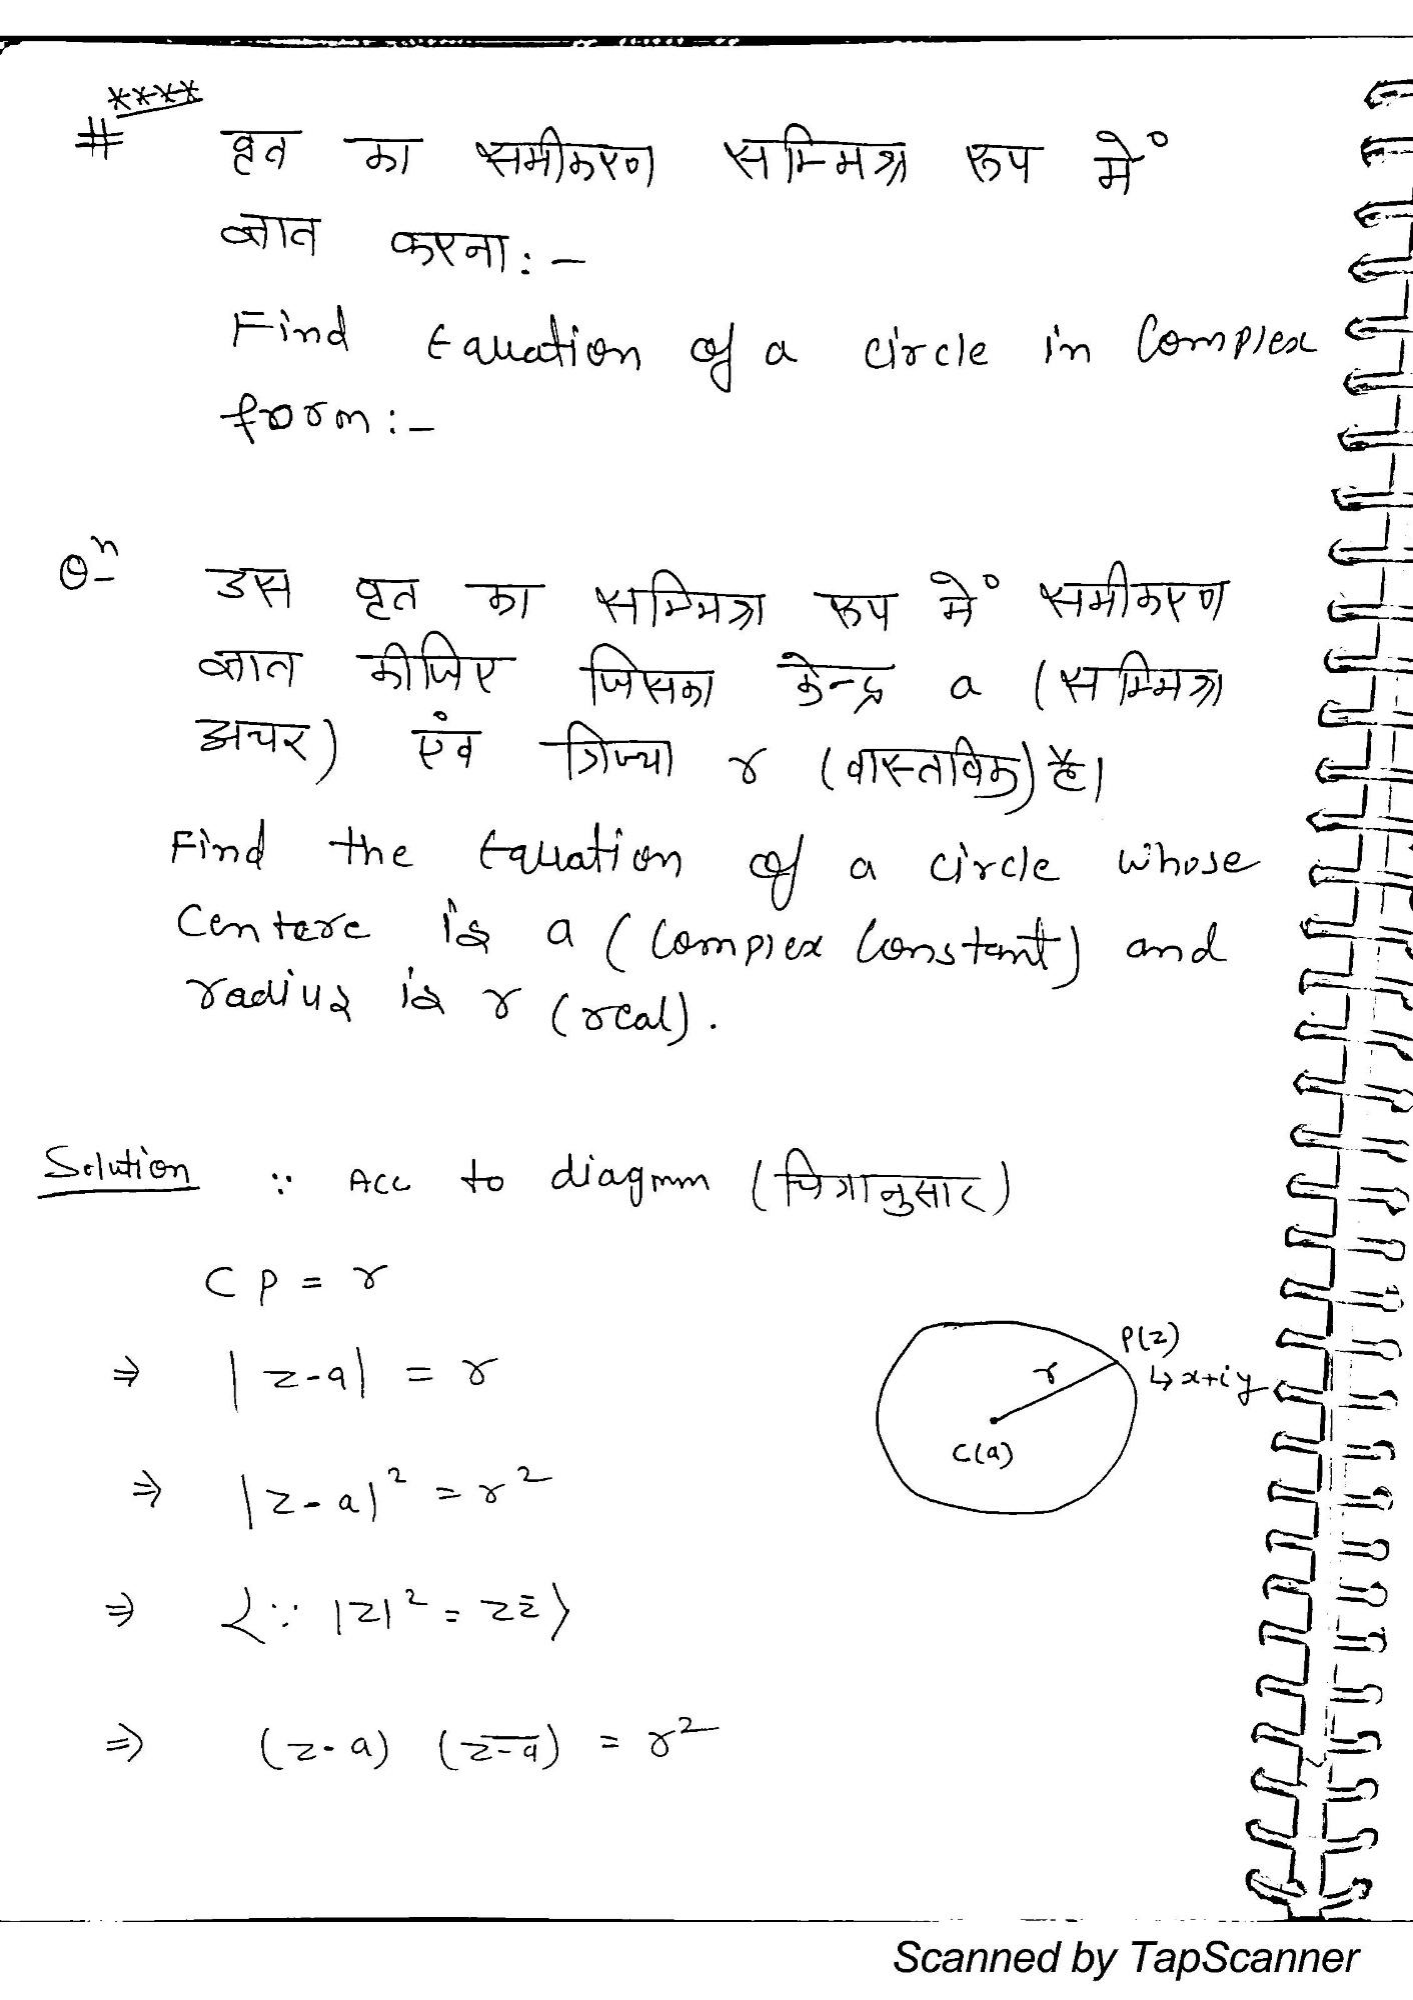 ****
# वृत का समीकरण सम्मिश्र रूप में
ज्ञात करना:-
Find Equation of a circle in Complex
form:-
Qn उस वृत का सम्मिश्र रूप में समीकरण
ज्ञात कीजिए जिसका केन्द्र a (सम्मिश्र
अचर) एंव त्रिज्या r (वास्तविक) है।
Find the Equation of a circle whose
Centere is a (Complex Constant) and
radius is r (real).
Solution ∵ Acc to diagram (चित्रानुसार)
CP = r
⇒ |z-a| = r
P(z)
r
↳ x+iy
C(a)
⇒ |z-a|² = r²
⇒ <∵ |z|² = zz̄>
⇒ (z-a) (z̅-̅a̅) = r²
Scanned by TapScanner